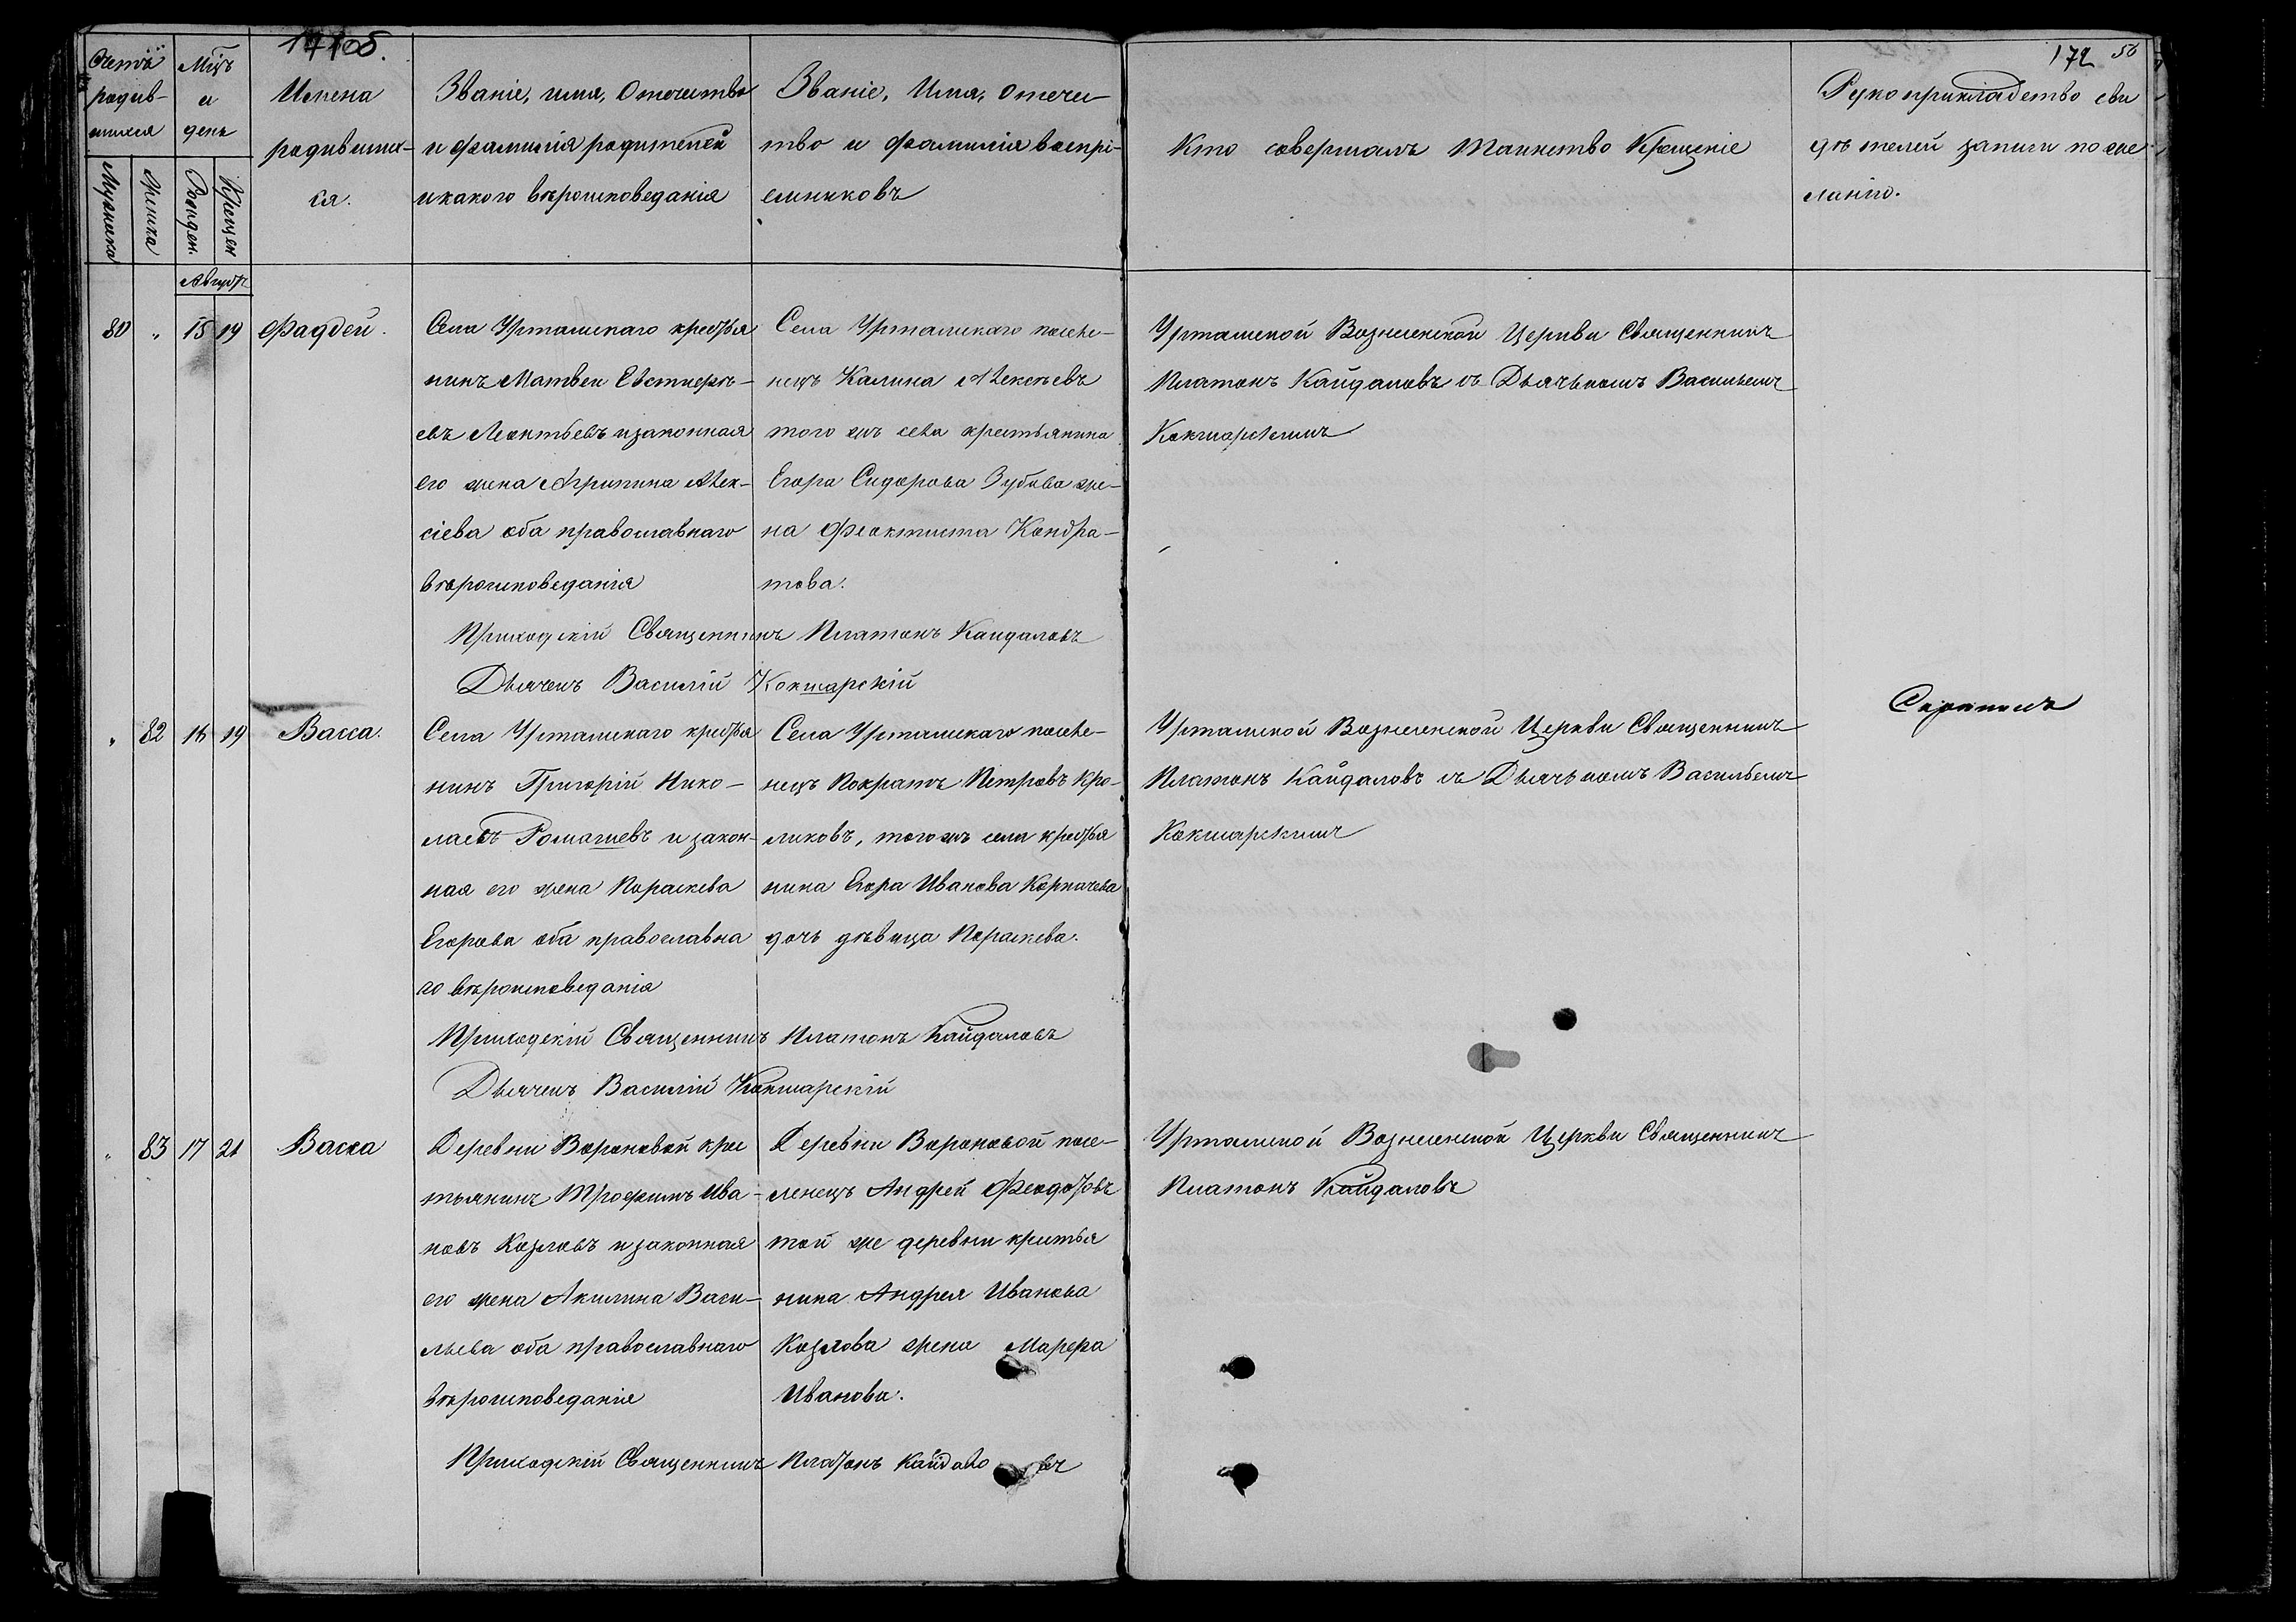 171об.
172 56
Счетъ родив-шихся
Мцъ и день
Имена родивших-ся.
Званіе, имя, Отечество и фамилія родителей и какого вѣроисповеданія
Званіе, Имя, Отече-ство и фамилія воспрі-емниковъ
Кто совершалъ Таинство Крещеніе
Рукоприкладство сви дѣтелей записи по же ланію.
Мужеска
Женска
Рожден.
Крещен
Август
80 " 15 19 Фаддей.
Села Уртамскаго крестья
нинъ Матвеи Евстигнѣ-
евъ Леонтьевъ и законная
его жена Агрипина Алек-
сіева оба православнаго
вѣроисповеданія
Села Уртамскаго поселе-
нецъ Калина Алексѣевъ
того жъ села крестьянина
Егора Сидорова Зубова же-
на Феоктиста Кондра-
това.
Уртамской Вознесенской Церкви Священникъ
Платонъ Кайдаловъ съ Дьячькомъ Васильемъ
Кокшарскимъ
Приходскій Священникъ Платонъ Каидаловъ
Дьячекъ Василій Кокшарскій
" 82 16 19 Васса.
Села Уртамскаго крестья
нинъ Григорій Нико-
лаевъ Ромашевъ и закон-
ная его жена Параскева
Егорова оба православна
го вѣроисповеданія
Села Уртамскаго поселе-
нецъ Пократъ Петровъ Кро-
ликовъ, того жъ села крестья
нина Егора Иванова Карпачева
дочь дѣвица Параскева.
Уртамской Вознесенской Церкви Священникъ
Платонъ Кайдаловъ съ Дьячькомъ Васильемъ
Кокшарскимъ
Приходскій Священникъ Платонъ Кайдаловъ
Дьячекъ Василій Кокшарскій
" 83 17 21 Васса
Деревни Вороновой крес
тьянинъ Трофимъ Ива-
новъ Козловъ и законная
его жена Акилина Васи-
льева оба православнаго
вѣроисповеданія
Деревни Вороновой посе-
ленецъ Андрей Феодотовъ
той же деревни крестья
нина Андрея Иванова
Козлова жена Марфа
Иванова.
Уртамской Вознесенской Церкви Священникъ
Платонъ Кайдаловъ
Приходскій Священникъ Платонъ Кайдаловъ